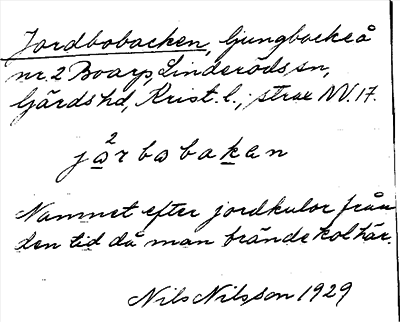 Jordbobacken, ljungbacke å
nr. 2 Boarp, Linderöds sn,
Gärds hd, Krist. l., strax NV. 17.
jo²rbobakan
Namnet efter jordkulor från
den tid då man brände kol här.
Nils Nilsson 1929